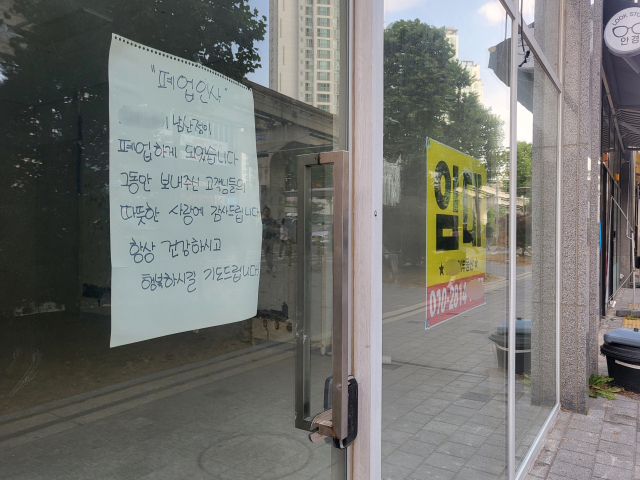 "폐업인사"
폐업하게 되었습니다
그동안 보내주신 고객님들의
따뜻한 사랑에 감사드립니다
항상 건강하시고
행복하시길 기도드립니다
임대
010-2814
LOOK
안경